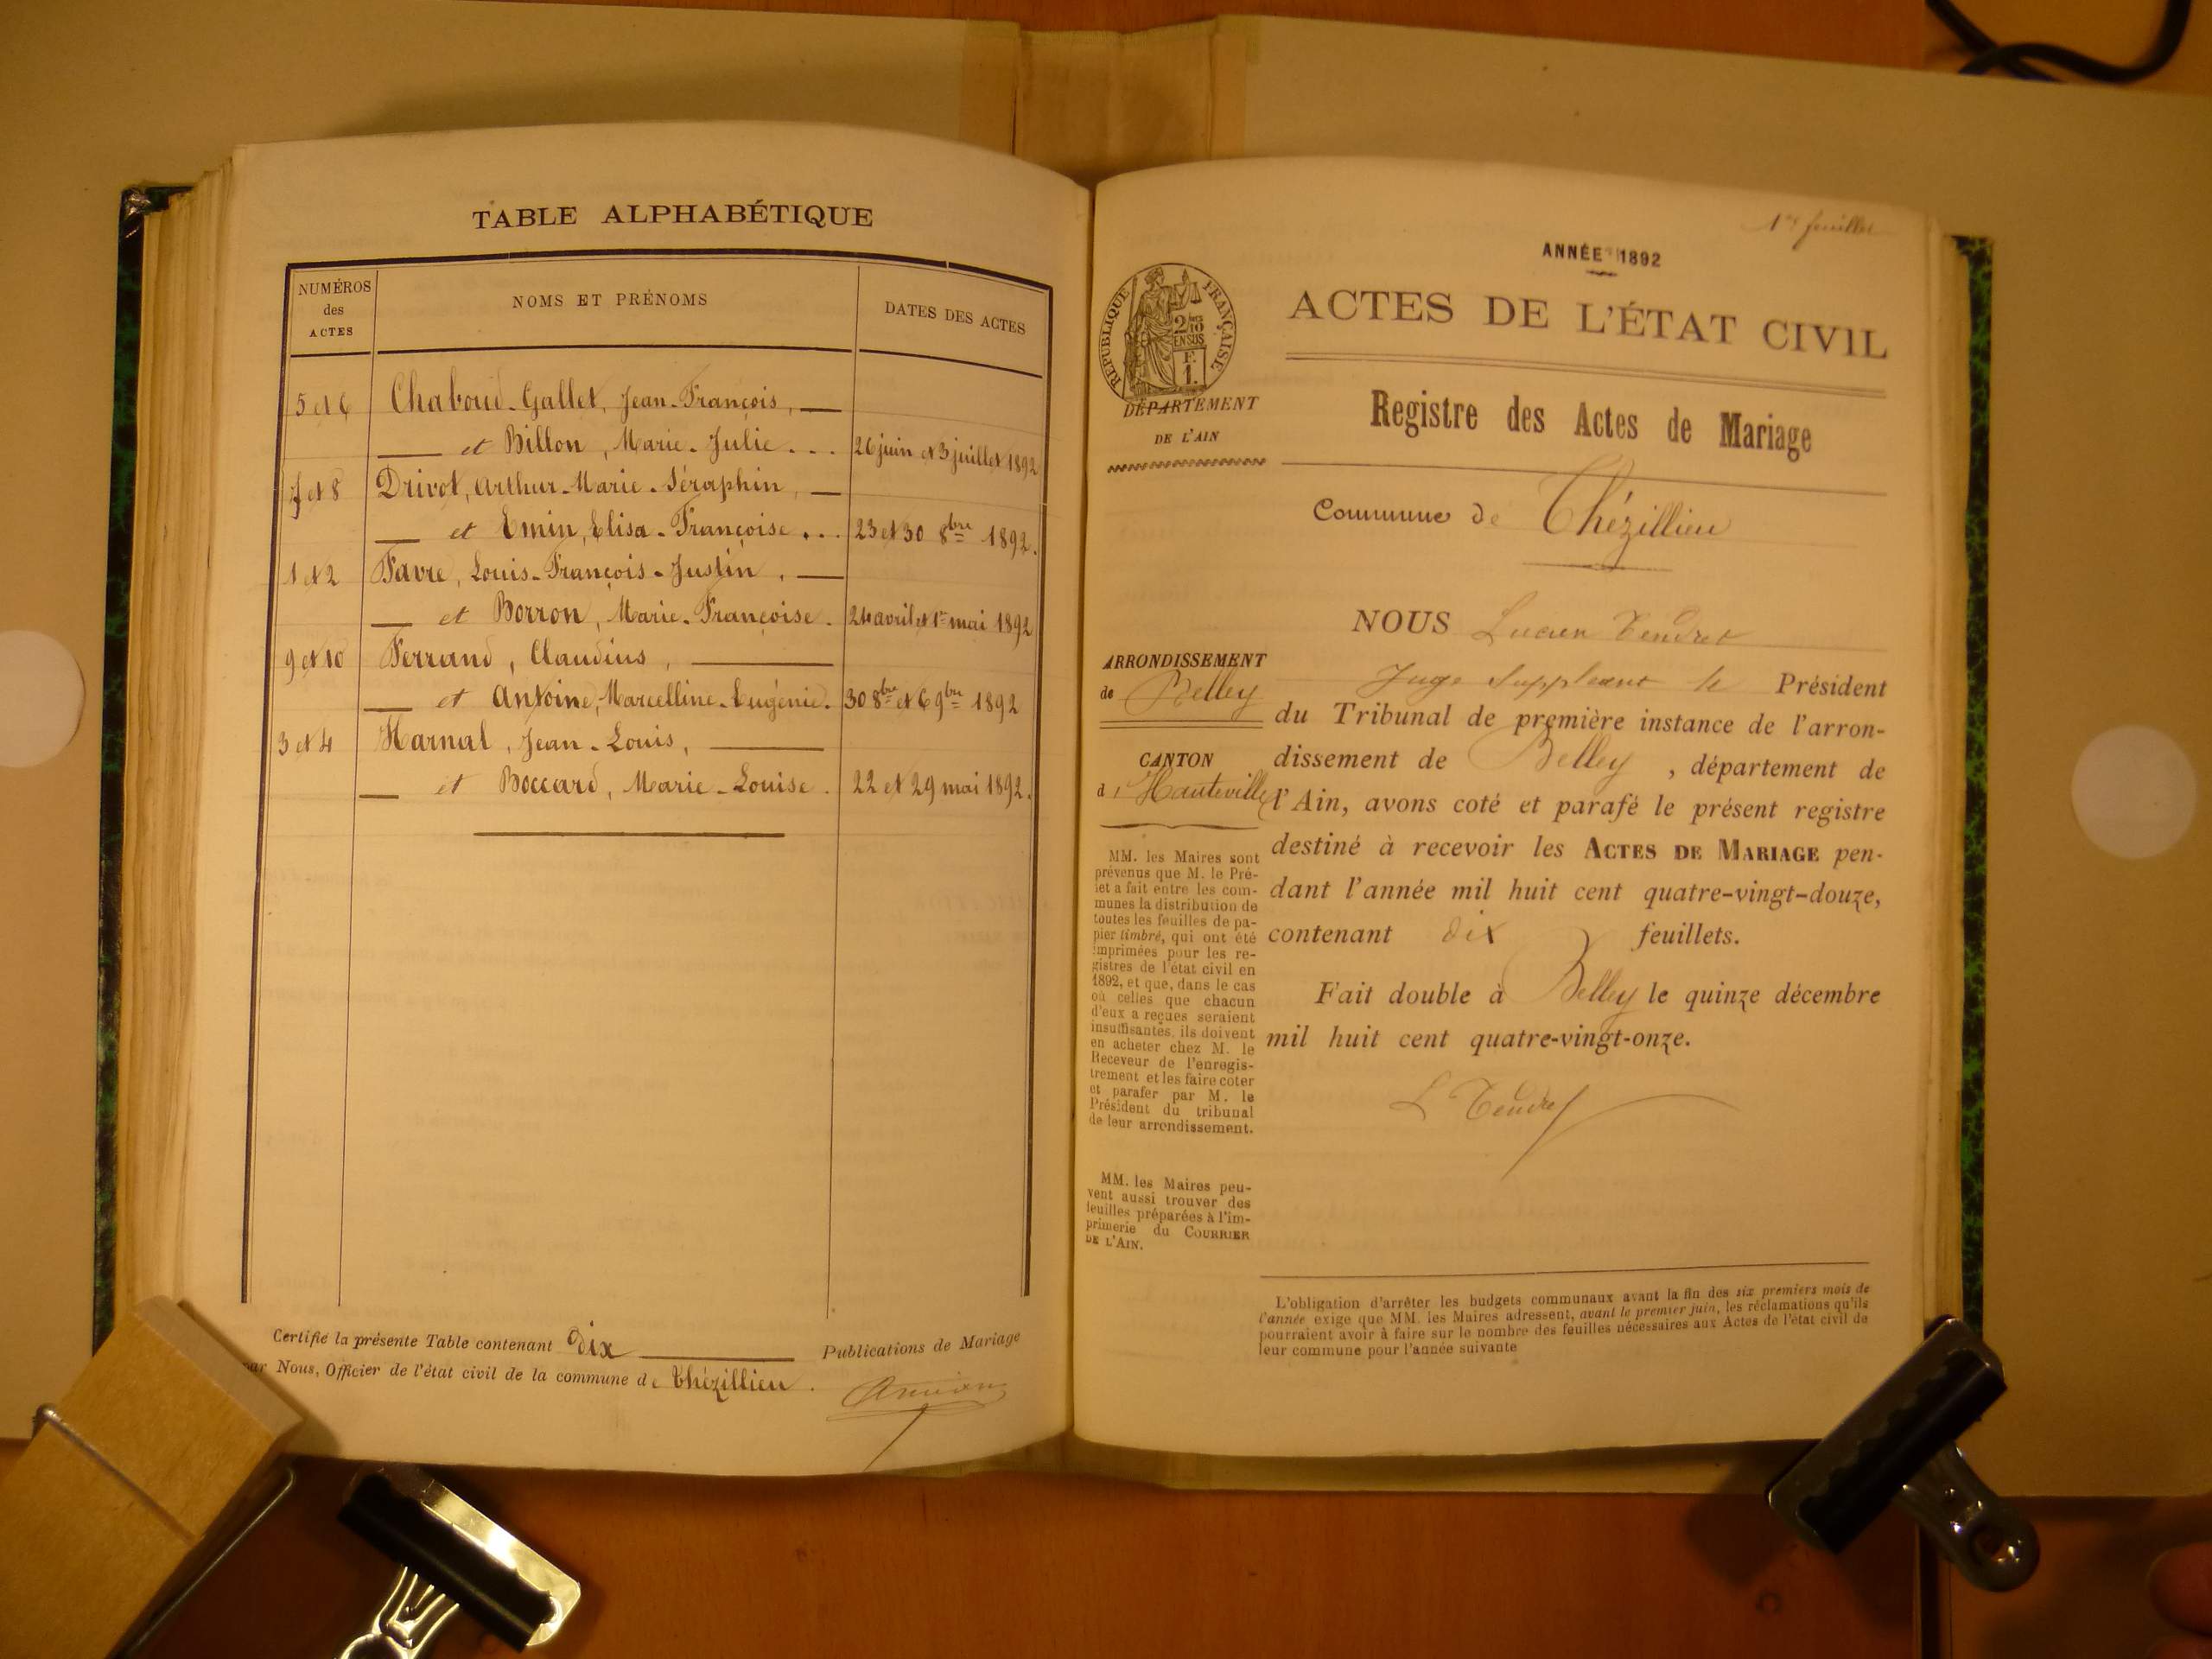 TABLE ALPHABÉTIQUE
NUMÉROS
des
ACTES
NOMS ET PRÉNOMS
DATES DES ACTES
5 et 6 Chaboud-Gallet, Jean-François,
et Billon, Marie-Julie... 26 juin et 3 juillet 1892
7 et 8 Drivot, Arthur-Marie-Séraphin,
et Emin, Elisa-Françoise... 23 et 30 8bre 1892.
1 et 2 Favre, Louis-François-Justin,
et Borron, Marie-Françoise. 24 avril et 1er mai 1892
9 et 10 Ferrand, Claudius,
et Antoine, Marcelline-Eugénie. 30 8bre et 6 9bre 1892
3 et 4 Harnal, Jean-Louis,
et Boccard, Marie-Louise. 22 et 29 mai 1892.
Certifié la présente Table contenant dix Publications de Mariage
par Nous, Officier de l'état civil de la commune de Thézillieu.
1er feuillet
ANNÉE 1892
RÉPUBLIQUE FRANÇAISE
2/10
EN SUS
F.
1.
ACTES DE L'ÉTAT CIVIL
DÉPARTEMENT
DE L'AIN
Registre des Actes de Mariage
Commune de Thézillieu
NOUS Lucien Tendret
ARRONDISSEMENT
de Belley
CANTON
d'Hauteville
Juge suppléant le Président
du Tribunal de première instance de l'arron-
dissement de Belley, département de
l'Ain, avons coté et parafé le présent registre
destiné à recevoir les ACTES DE MARIAGE pen-
dant l'année mil huit cent quatre-vingt-douze,
contenant dix feuillets.
Fait double à Belley le quinze décembre
mil huit cent quatre-vingt-onze.
L Tendret
MM. les Maires sont
prévenus que M. le Pré-
fet a fait entre les com-
munes la distribution de
toutes les feuilles de pa-
pier timbré, qui ont été
imprimées pour les re-
gistres de l'état civil en
1892, et que, dans le cas
où celles que chacun
d'eux a reçues seraient
insuffisantes, ils doivent
en acheter chez M. le
Receveur de l'enregis-
trement et les faire coter
et parafer par M. le
Président du tribunal
de leur arrondissement.
MM. les Maires peu-
vent aussi trouver des
feuilles préparées à l'im-
primerie du COURRIER
DE L'AIN.
L'obligation d'arrêter les budgets communaux avant la fin des six premiers mois de
l'année exige que MM. les Maires adressent, avant le premier juin, les réclamations qu'ils
pourraient avoir à faire sur le nombre des feuilles nécessaires aux Actes de l'état civil de
leur commune pour l'année suivante